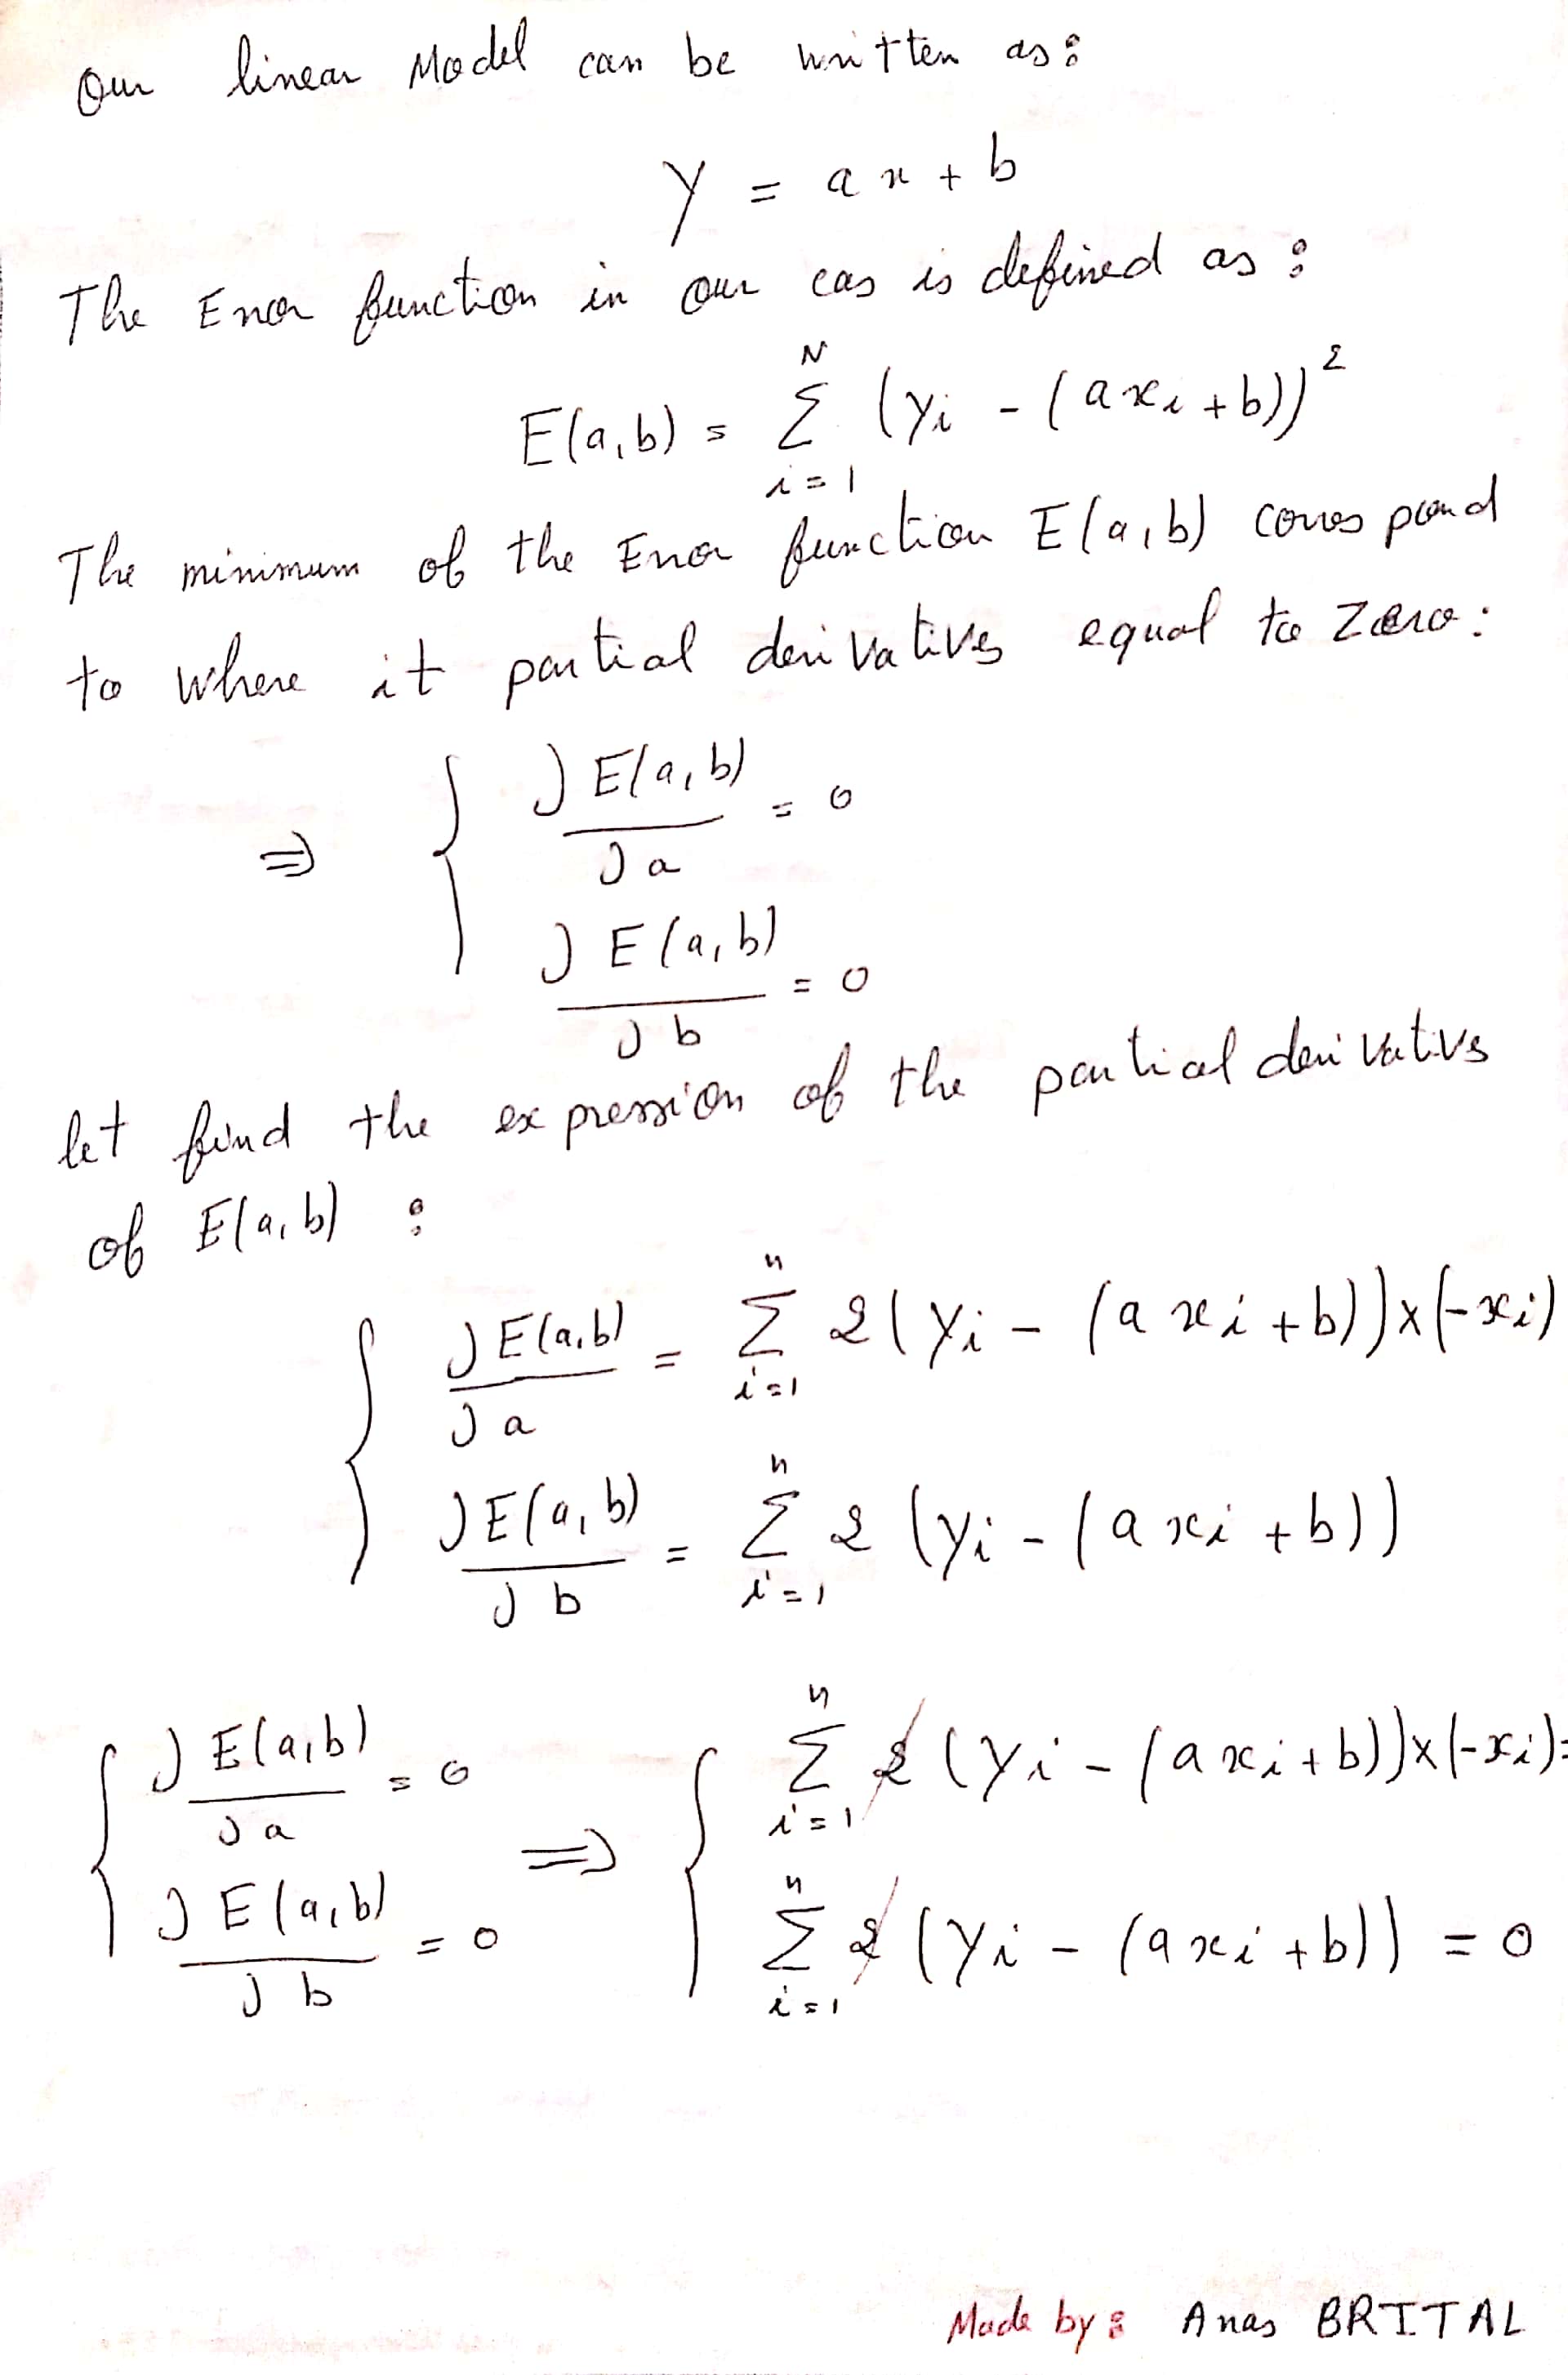 Our linear Model can be written as:
y = ax + b
The Error function in our cas is defined as :
E(a,b) = \sum_{i=1}^{N} (y_i - (ax_i + b))^2
The minimum of the Error function E(a,b) corres pond
to where it partial derivatives equal to Zero:
=> { ∂E(a,b)/∂a = 0
∂E(a,b)/∂b = 0
let find the expression of the partial derivativs
of E(a,b) :
{ ∂E(a,b)/∂a = \sum_{i=1}^{n} 2(y_i - (ax_i + b))x(-x_i)
∂E(a,b)/∂b = \sum_{i=1}^{n} 2(y_i - (ax_i + b))
{ ∂E(a,b)/∂a = 0 => { \sum_{i=1}^{n} 2(y_i - (ax_i + b))x(-x_i)=
∂E(a,b)/∂b = 0 \sum_{i=1}^{n} 2(y_i - (ax_i + b)) = 0
Made by: Anas BRITAL